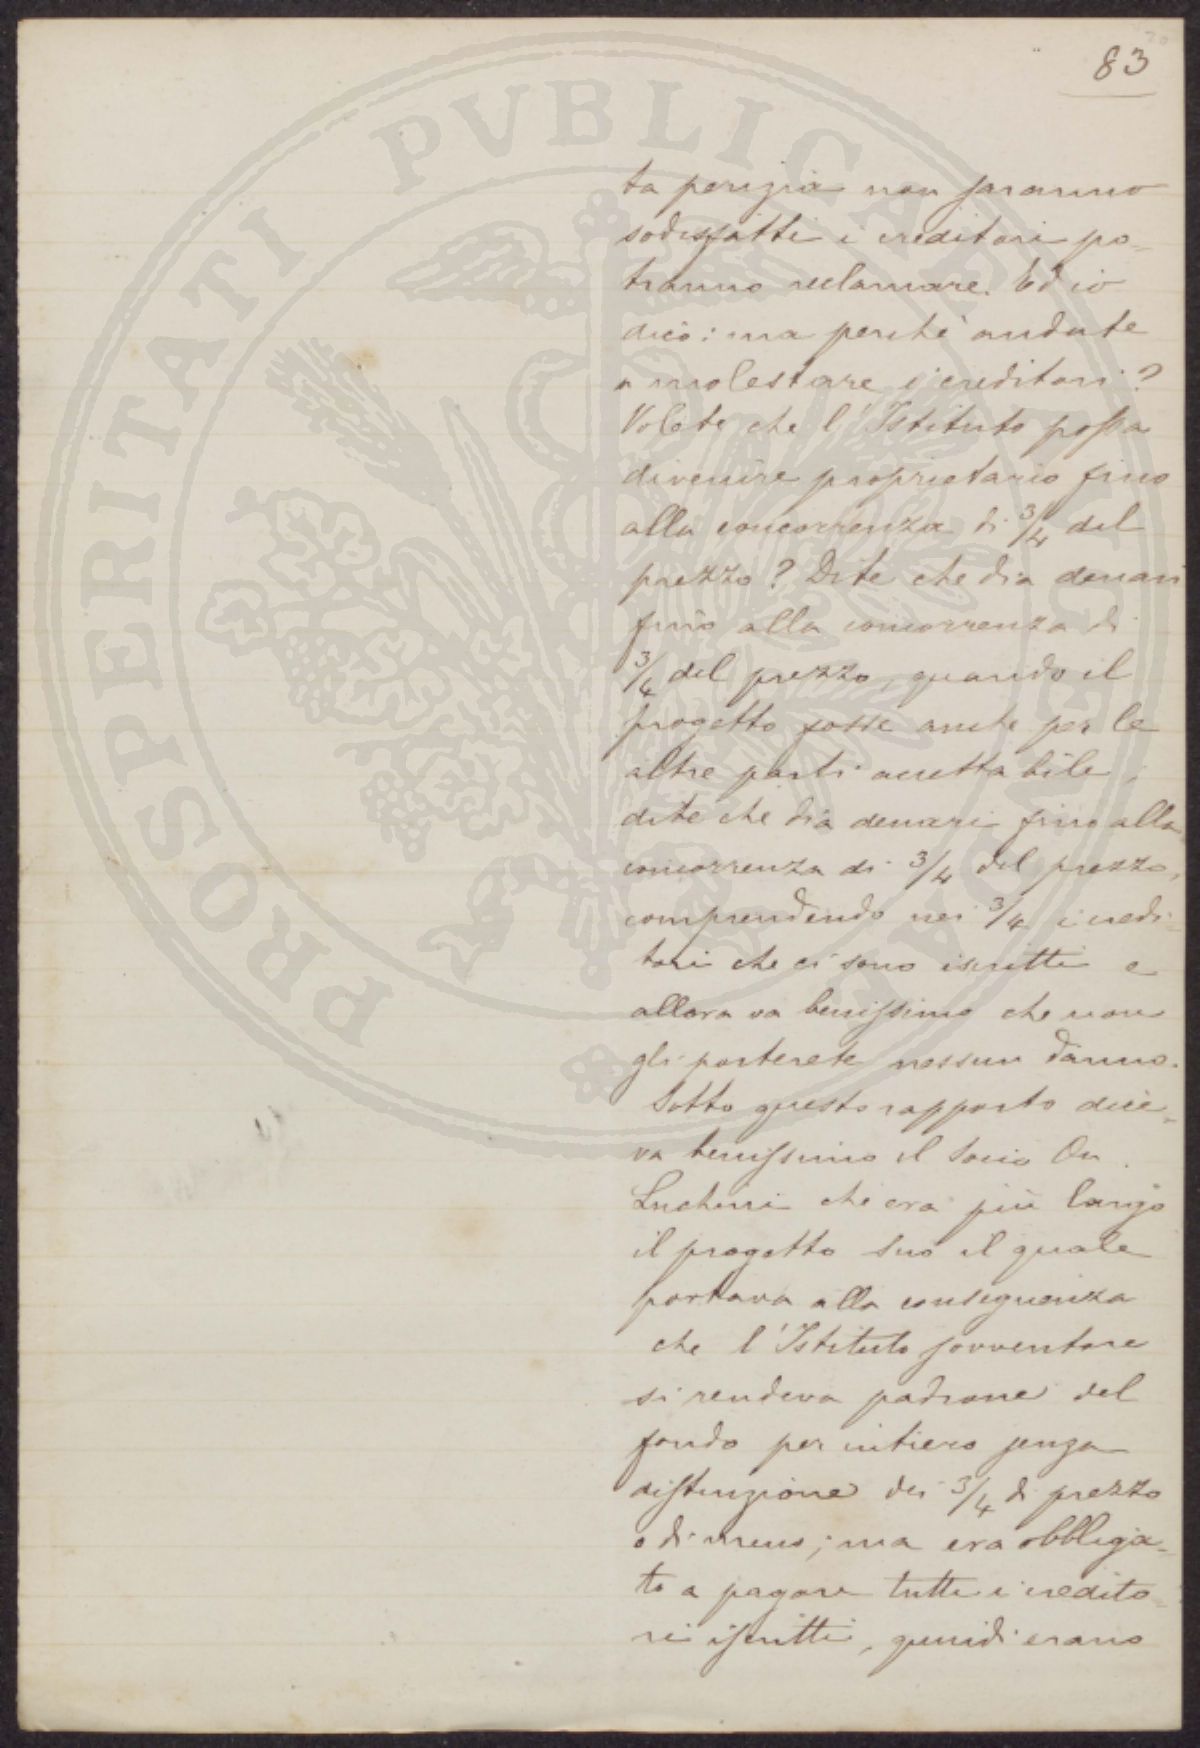 83
ta perizia non saranno
sodisfatti i creditori po-
tranno reclamare. Ed io
dico: ma perchè andate
a molestare i creditori?
Volete che l'Istituto possa
divenire proprietario fino
alla concorrenza di 3/4 del
prezzo? Dite che dia denari
fino alla concorrenza di
3/4 del prezzo, quando il
progetto fosse anche per le
altre parti accettabile;
dite che dia denari fino alla
concorrenza di 3/4 del prezzo,
comprendendo nei 3/4 i credi-
tori che ci sono iscritti e
allora va benissimo che non
gli porterete nessun danno.
Sotto questo rapporto dice-
va benissimo il Socio On.
Luchini che era più largo
il progetto suo il quale
portava alla conseguenza
che l'Istituto sovventore
si rendeva padrone del
fondo per intiero senza
distinzione dei 3/4 di prezzo
o di meno; ma era obbliga-
to a pagare tutti i credito-
ri iscritti, quindi erano
PROSPERITATI PVBLICAE AVGENDAE